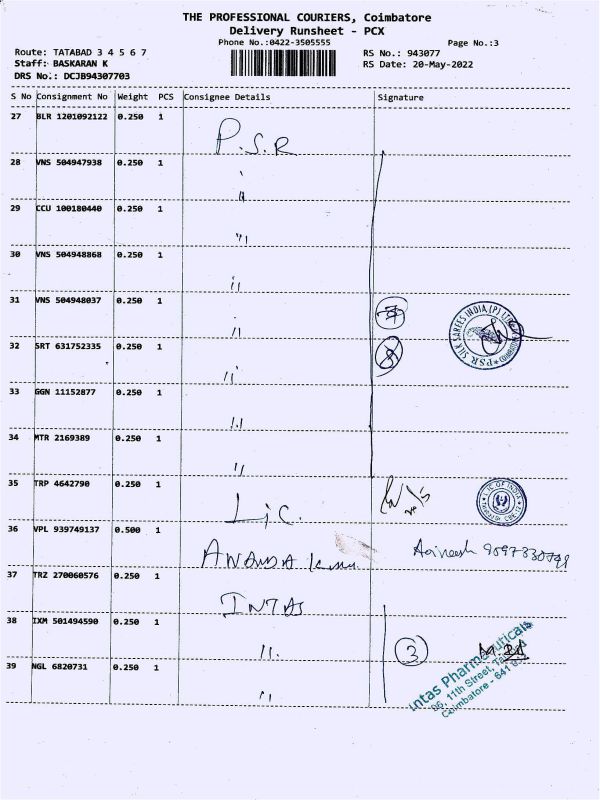 THE PROFESSIONAL COURIERS, Coimbatore
Delivery Runsheet - PCX
Phone No.:0422-3505555
Page No.:3
Route: TATABAD 3 4 5 6 7
RS No.: 943077
Staff: BASKARAN K
RS Date: 20-May-2022
DRS No.: DCJB94307703
S No Consignment No Weight PCS Consignee Details Signature
27 BLR 1201092122 0.250 1 P.S.R
28 VNS 504947938 0.250 1 "
29 CCU 100180440 0.250 1 "
30 VNS 504948868 0.250 1 "
31 VNS 504948037 0.250 1 "
PSR SILK SAREES INDIA (P) LTD
32 SRT 631752335 0.250 1 " 8
33 GGN 11152877 0.250 1 "
34 MTR 2169389 0.250 1 "
35 TRP 4642790 0.250 1 LIC. 20/5
L.I.C OF INDIA
36 VPL 939749137 0.500 1 ANANDA
37 TRZ 270060576 0.250 1 INTAS
38 IXM 501494590 0.250 1 " 3
Intas Pharmaceuticals
86, 11th Street,
Coimbatore - 641
39 NGL 6820731 0.250 1 "